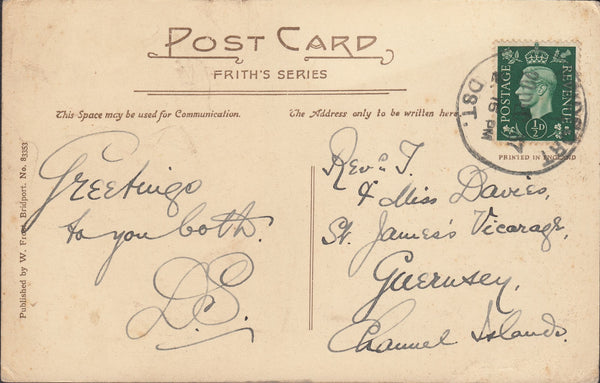 POST CARD
FRITH'S SERIES
This Space may be used for Communication.
The Address only to be written here.
POSTAGE
REVENUE
½D
DST.
PRINTED IN ENGLAND
Published by W. Frost, Bridport. No. 83353
Greetings
to you both.
D.S.
Revd. T.
& Miss Davies,
St. James's Vicarage,
Guernsey,
Channel Islands.